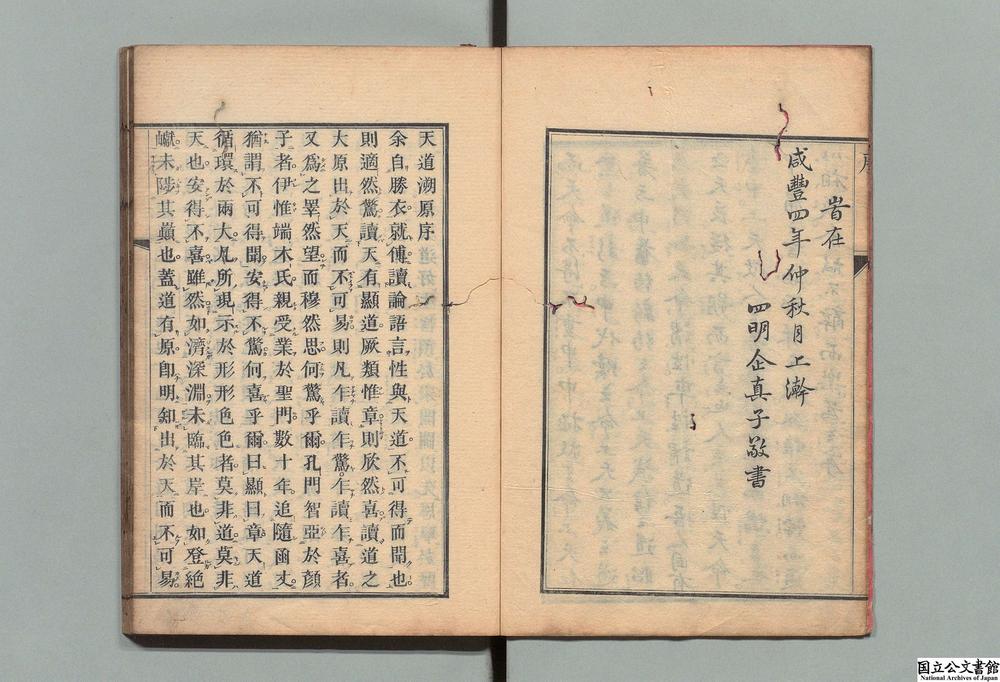 岩在
咸豐四年仲秋月上澣
四明企真子敬書
天道溯原序
余自勝衣就傅讀論語言性與天道不可得而聞也
則適然驚讀天有顯道厥類惟章則欣然喜讀道之
大原出於天而不可易則凡乍讀乍驚乍讀乍喜者
又爲之睪然望而穆然思何驚乎爾孔門智亞於顏
子者伊惟端木氏親受業於聖門數十年追隨凾丈
猶謂不可得聞安得不驚何喜乎爾曰顯曰章天道
循環於兩大凡所現示於形形色色者莫非道莫非
天也安得不喜雖然如濟深淵未臨其岸也如登絶
巘未陟其巔也蓋道有原卽明知出於天而不可易
国立公文書館
National Archives of Japan